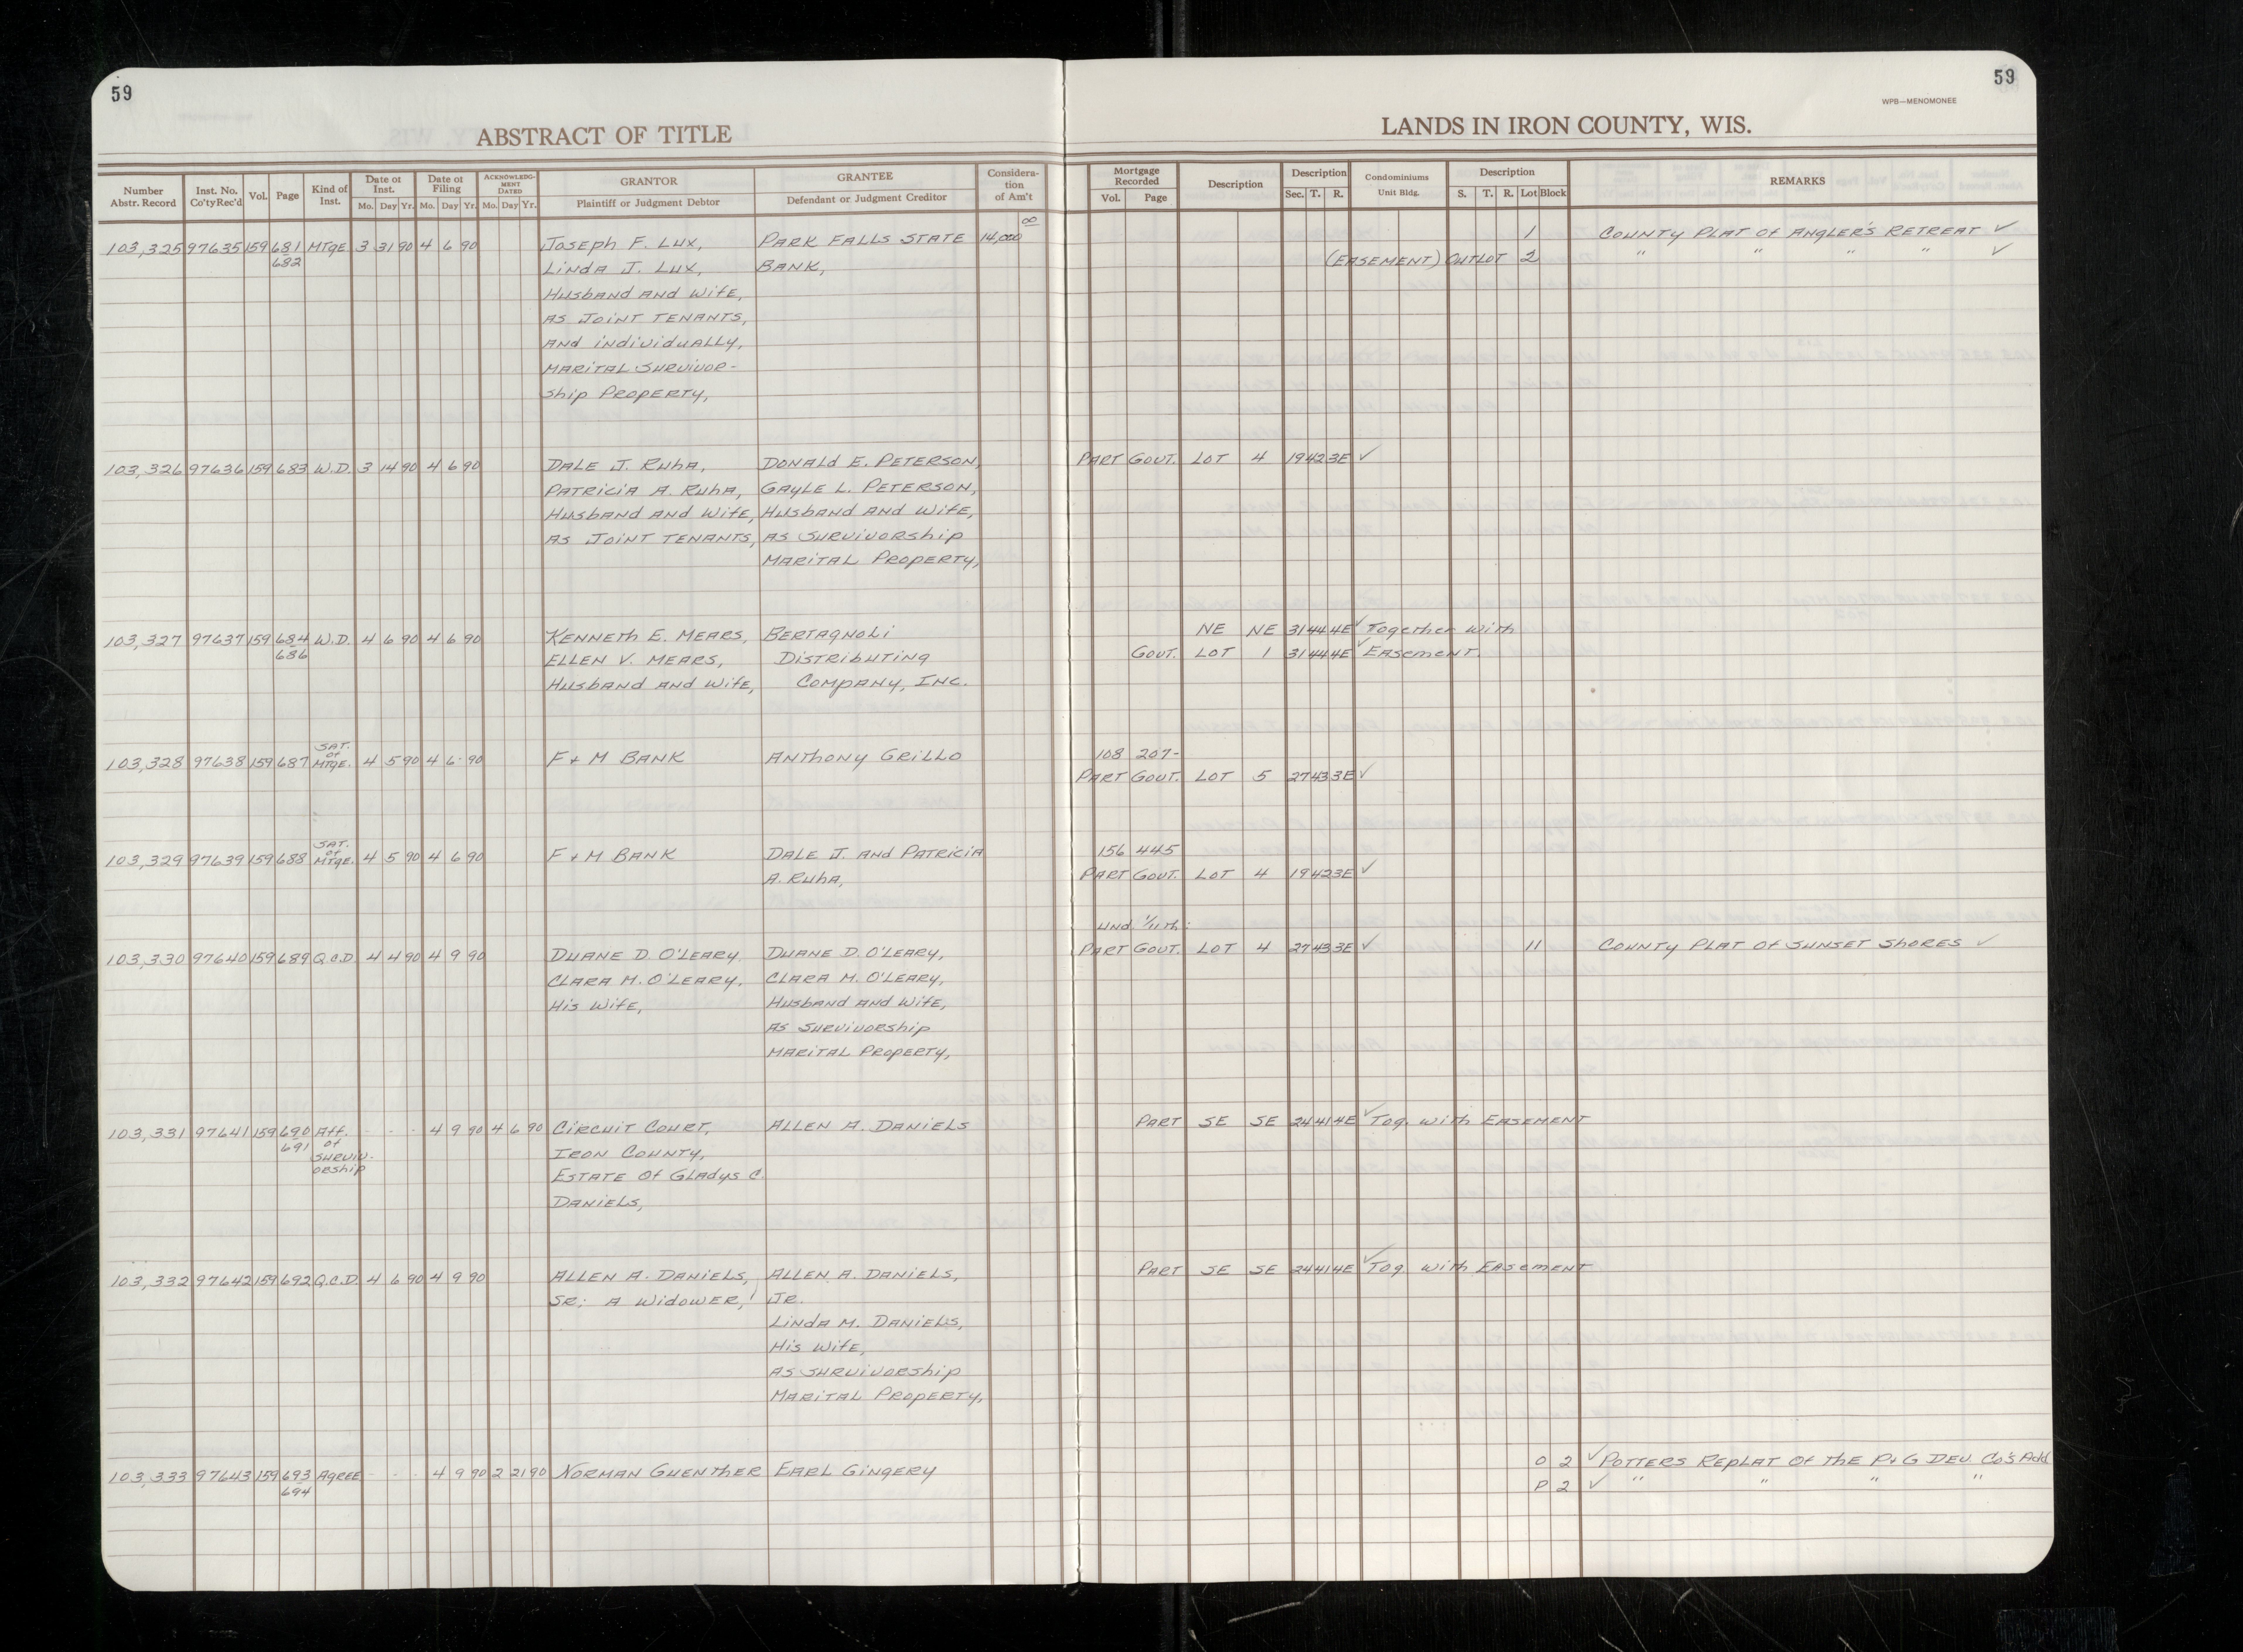 59
59
WPB—MENOMONEE
ABSTRACT OF TITLE
LANDS IN IRON COUNTY, WIS.
Number Abstr. Record | Inst. No. Co'ty Rec'd | Vol. | Page | Kind of Inst. | Date of Inst. Mo. Day Yr. | Date of Filing Mo. Day Yr. | ACKNOWLEDGMENT DATED Mo. Day Yr. | GRANTOR Plaintiff or Judgment Debtor | GRANTEE Defendant or Judgment Creditor | Consideration of Am't | Mortgage Recorded Vol. Page | Description | Description Sec. T. R. | Condominiums Unit Bldg. | Description S. T. R. Lot Block | REMARKS
103,325 97635 159 681 MTGE 3 31 90 4 6 90 JOSEPH F. LUX, PARK FALLS STATE 14,000 00 1 COUNTY PLAT OF ANGLER'S RETREAT ✓
682 LINDA J. LUX, BANK, (EASEMENT) OUTLOT 2 " " " " ✓
HUSBAND AND WIFE,
AS JOINT TENANTS,
AND INDIVIDUALLY,
MARITAL SURVIVOR-
SHIP PROPERTY,
103,326 97636 159 683 W.D. 3 14 90 4 6 90 DALE J. RUHA, DONALD E. PETERSON, PART GOVT. LOT 4 19 42 3E ✓
PATRICIA A. RUHA, GAYLE L. PETERSON,
HUSBAND AND WIFE, HUSBAND AND WIFE,
AS JOINT TENANTS, AS SURVIVORSHIP
MARITAL PROPERTY,
103,327 97637 159 684 W.D. 4 6 90 4 6 90 KENNETH E. MEARS, BERTAGNOLI NE NE 31 44 4E ✓ Together with
686 ELLEN V. MEARS, DISTRIBUTING GOVT. LOT 1 31 44 4E ✓ EASEMENT.
HUSBAND AND WIFE, COMPANY, INC.
103,328 97638 159 687 SAT. of MTGE. 4 5 90 4 6 90 F + M BANK ANTHONY GRILLO 108 207-
PART GOVT. LOT 5 27 43 3E ✓
103,329 97639 159 688 SAT. of MTGE. 4 5 90 4 6 90 F + M BANK DALE J. AND PATRICIA 156 445
A. RUHA, PART GOVT. LOT 4 19 42 3E ✓
UND. 1/11th:
103,330 97640 159 689 Q.C.D. 4 4 90 4 9 90 DUANE D. O'LEARY DUANE D. O'LEARY, PART GOVT. LOT 4 27 43 3E ✓ 11 COUNTY PLAT OF SUNSET SHORES ✓
CLARA M. O'LEARY, CLARA M. O'LEARY,
HIS WIFE, HUSBAND AND WIFE,
AS SURVIVORSHIP
MARITAL PROPERTY,
103,331 97641 159 690 Aff. - - - 4 9 90 4 6 90 CIRCUIT COURT, ALLEN A. DANIELS PART SE SE 24 41 4E ✓ TOG. WITH EASEMENT
691 of IRON COUNTY,
SURVIV- ESTATE OF GLADYS C.
ORSHIP DANIELS,
103,332 97642 159 692 Q.C.D. 4 6 90 4 9 90 ALLEN A. DANIELS, ALLEN A. DANIELS, PART SE SE 24 41 4E ✓ TOG. WITH EASEMENT
SR; A WIDOWER, JR.
LINDA M. DANIELS,
HIS WIFE,
AS SURVIVORSHIP
MARITAL PROPERTY,
103,333 97643 159 693 AGREE - - - 4 9 90 2 21 90 NORMAN GUENTHER EARL GINGERY O 2 ✓ POTTERS REPLAT OF THE P+G DEV. CO'S Add
694 P 2 ✓ " " " "